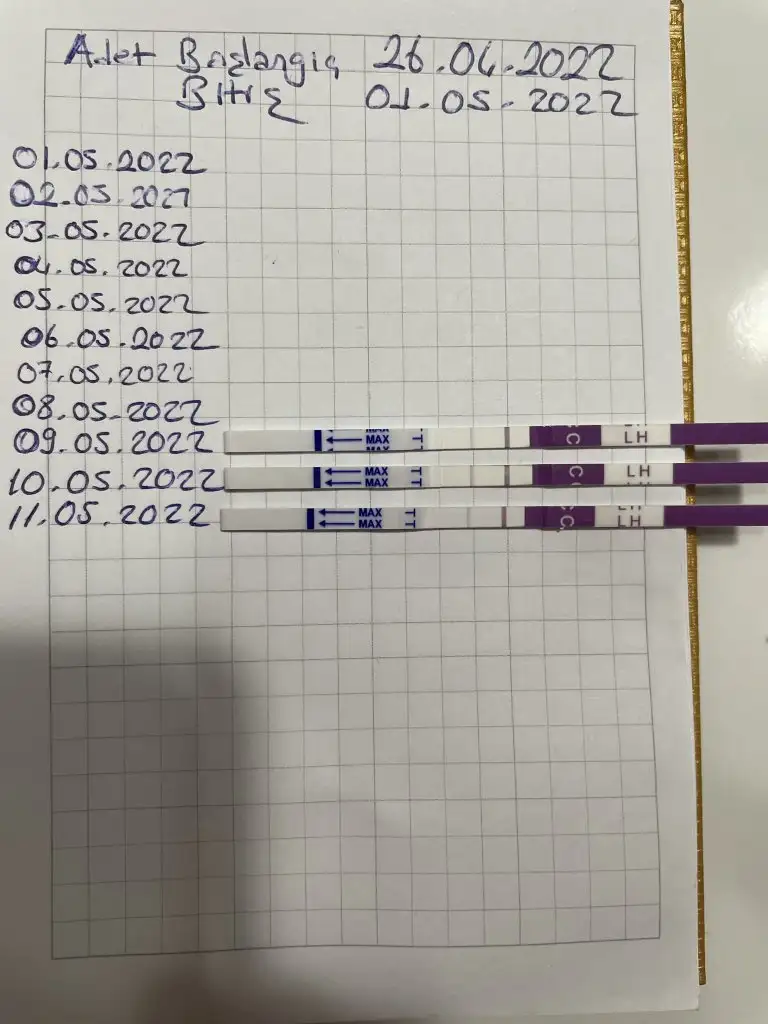 Adet Başlangıç 26.04.2022
Bitiş 01.05.2022
01.05.2022
02.05.2021
03.05.2022
04.05.2022
05.05.2022
06.05.2022
07.05.2022
08.05.2022
09.05.2022 MAX T T C LH
10.05.2022 MAX MAX T T C LH
11.05.2022 MAX MAX T T C C LH